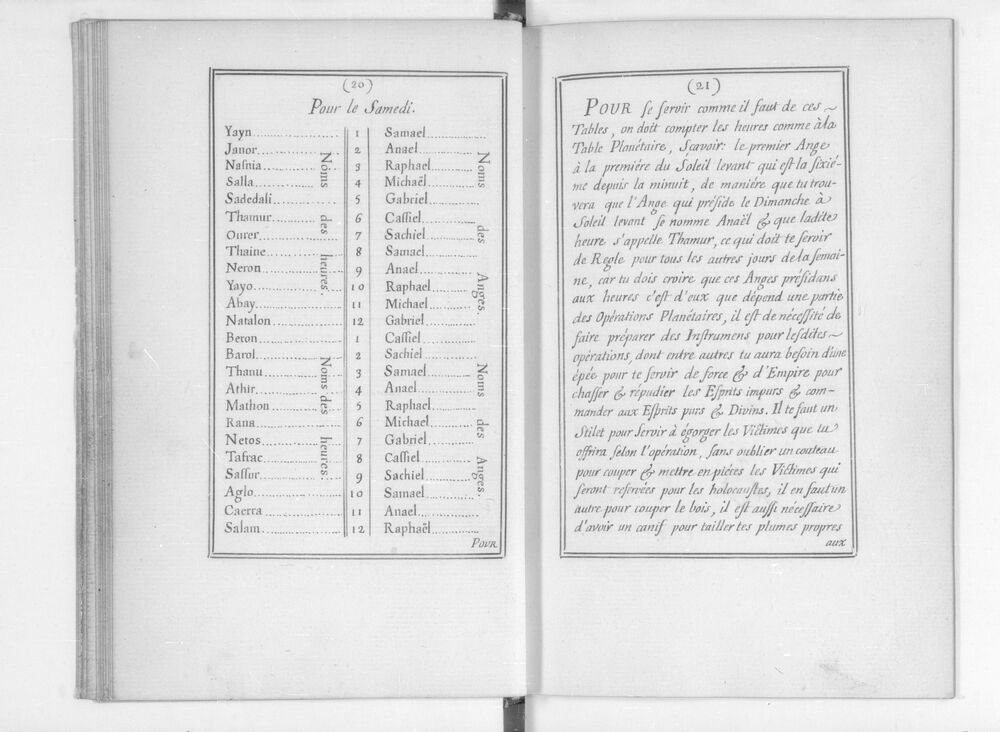 (20)
Pour le Samedi.
Yayn 1 Samael
Janor 2 Anael
Nasnia 3 Raphael
Salla 4 Michaël
Sadedali 5 Gabriel
Thamur 6 Cassiel
Ourer 7 Sachiel
Thaine 8 Samael
Neron 9 Anael
Yayo 10 Raphael
Abay 11 Michael
Natalon 12 Gabriel
Beron 1 Cassiel
Barol 2 Sachiel
Thanu 3 Samael
Athir 4 Anael
Mathon 5 Raphael
Rana 6 Michael
Netos 7 Gabriel
Tafrac 8 Cassiel
Sassur 9 Sachiel
Aglo 10 Samael
Caerra 11 Anael
Salam 12 Raphaël
Noms des heures.
Noms des heures.
Noms des Anges.
Noms des Anges.
Pour
(21)
POUR se servir comme il faut de ces ~
Tables, on doit compter les heures comme à la
Table Planétaire, Scavoir: le premier Ange
à la premiére du Soleil levant qui est la sixié-
me depuis la minuit, de maniére que tu trou-
vera que l'Ange qui préside le Dimanche à
Soleil levant se nomme Anaël & que ladite
heure s'appelle Thamur, ce qui doit te servir
de Regle pour tous les autres jours de la semai-
ne, car tu dois croire que ces Anges présidans
aux heures c'est d'eux que dépend une partie
des Opérations Planétaires, il est de nécessité de
faire préparer des Instrumens pour lesdites ~
opérations, dont entre autres tu aura besoin d'une
épée pour te servir de force & d'Empire pour
chasser & répudier les Esprits impurs & com-
mander aux Esprits purs & Divins. Il te faut un
Stilet pour servir à égorger les Victimes que tu
offrira selon l'opération, sans oublier un couteau
pour couper & mettre en piéces les Victimes qui
seront reservées pour les holocaustes, il en faut un
autre pour couper le bois, il est aussi nécessaire
d'avoir un canif pour tailler tes plumes propres
aux